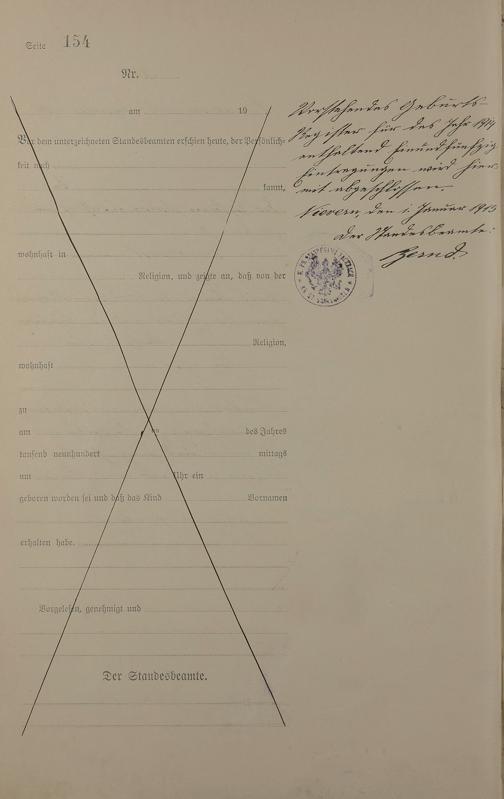 Seite 154
Nr.
am 19
Vor dem unterzeichneten Standesbeamten erschien heute, der Persönlich-
keit nach
kannt,
wohnhaft in
Religion, und zeigte an, daß von der
Religion,
wohnhaft
zu
am des Jahres
tausend neunhundert mittags
um Uhr ein
geboren worden sei und daß das Kind Vornamen
erhalten habe.
Vorgelesen, genehmigt und
Der Standesbeamte.
Vorstehendes Geburts-
Register für das Jahr 1914
enthaltend einundfünfzig
Eintragungen wird hier-
mit abgeschlossen.
Nievern, den 1. Januar 1915
Der Standesbeamte: